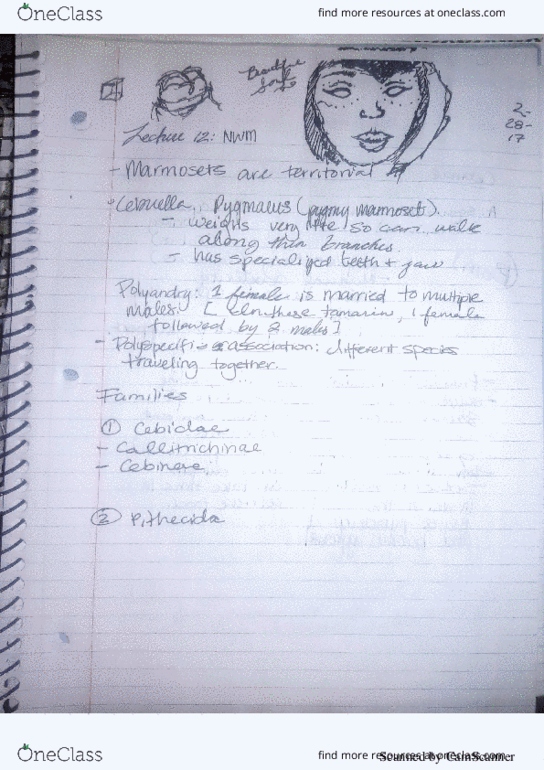 OneClass
find more resources at oneclass.com
Beautiful
2-
28-
17
Lecture 12: NWM
- Marmosets are territorial
Cebuella Pygmaeus (pygmy marmosets).
- weighs very lite so can walk
along thin branches.
- has specialized teeth + jaw
Polyandry: 1 female is married to multiple
males. [ In these tamarin, 1 female
followed by 2 males ]
- Polyspecific association: different species
traveling together.
Families
① Cebidae
- Callitrichinae
- Cebinae
② Pithecida
OneClass
find more resources at oneclass.com
Scanned by CamScanner